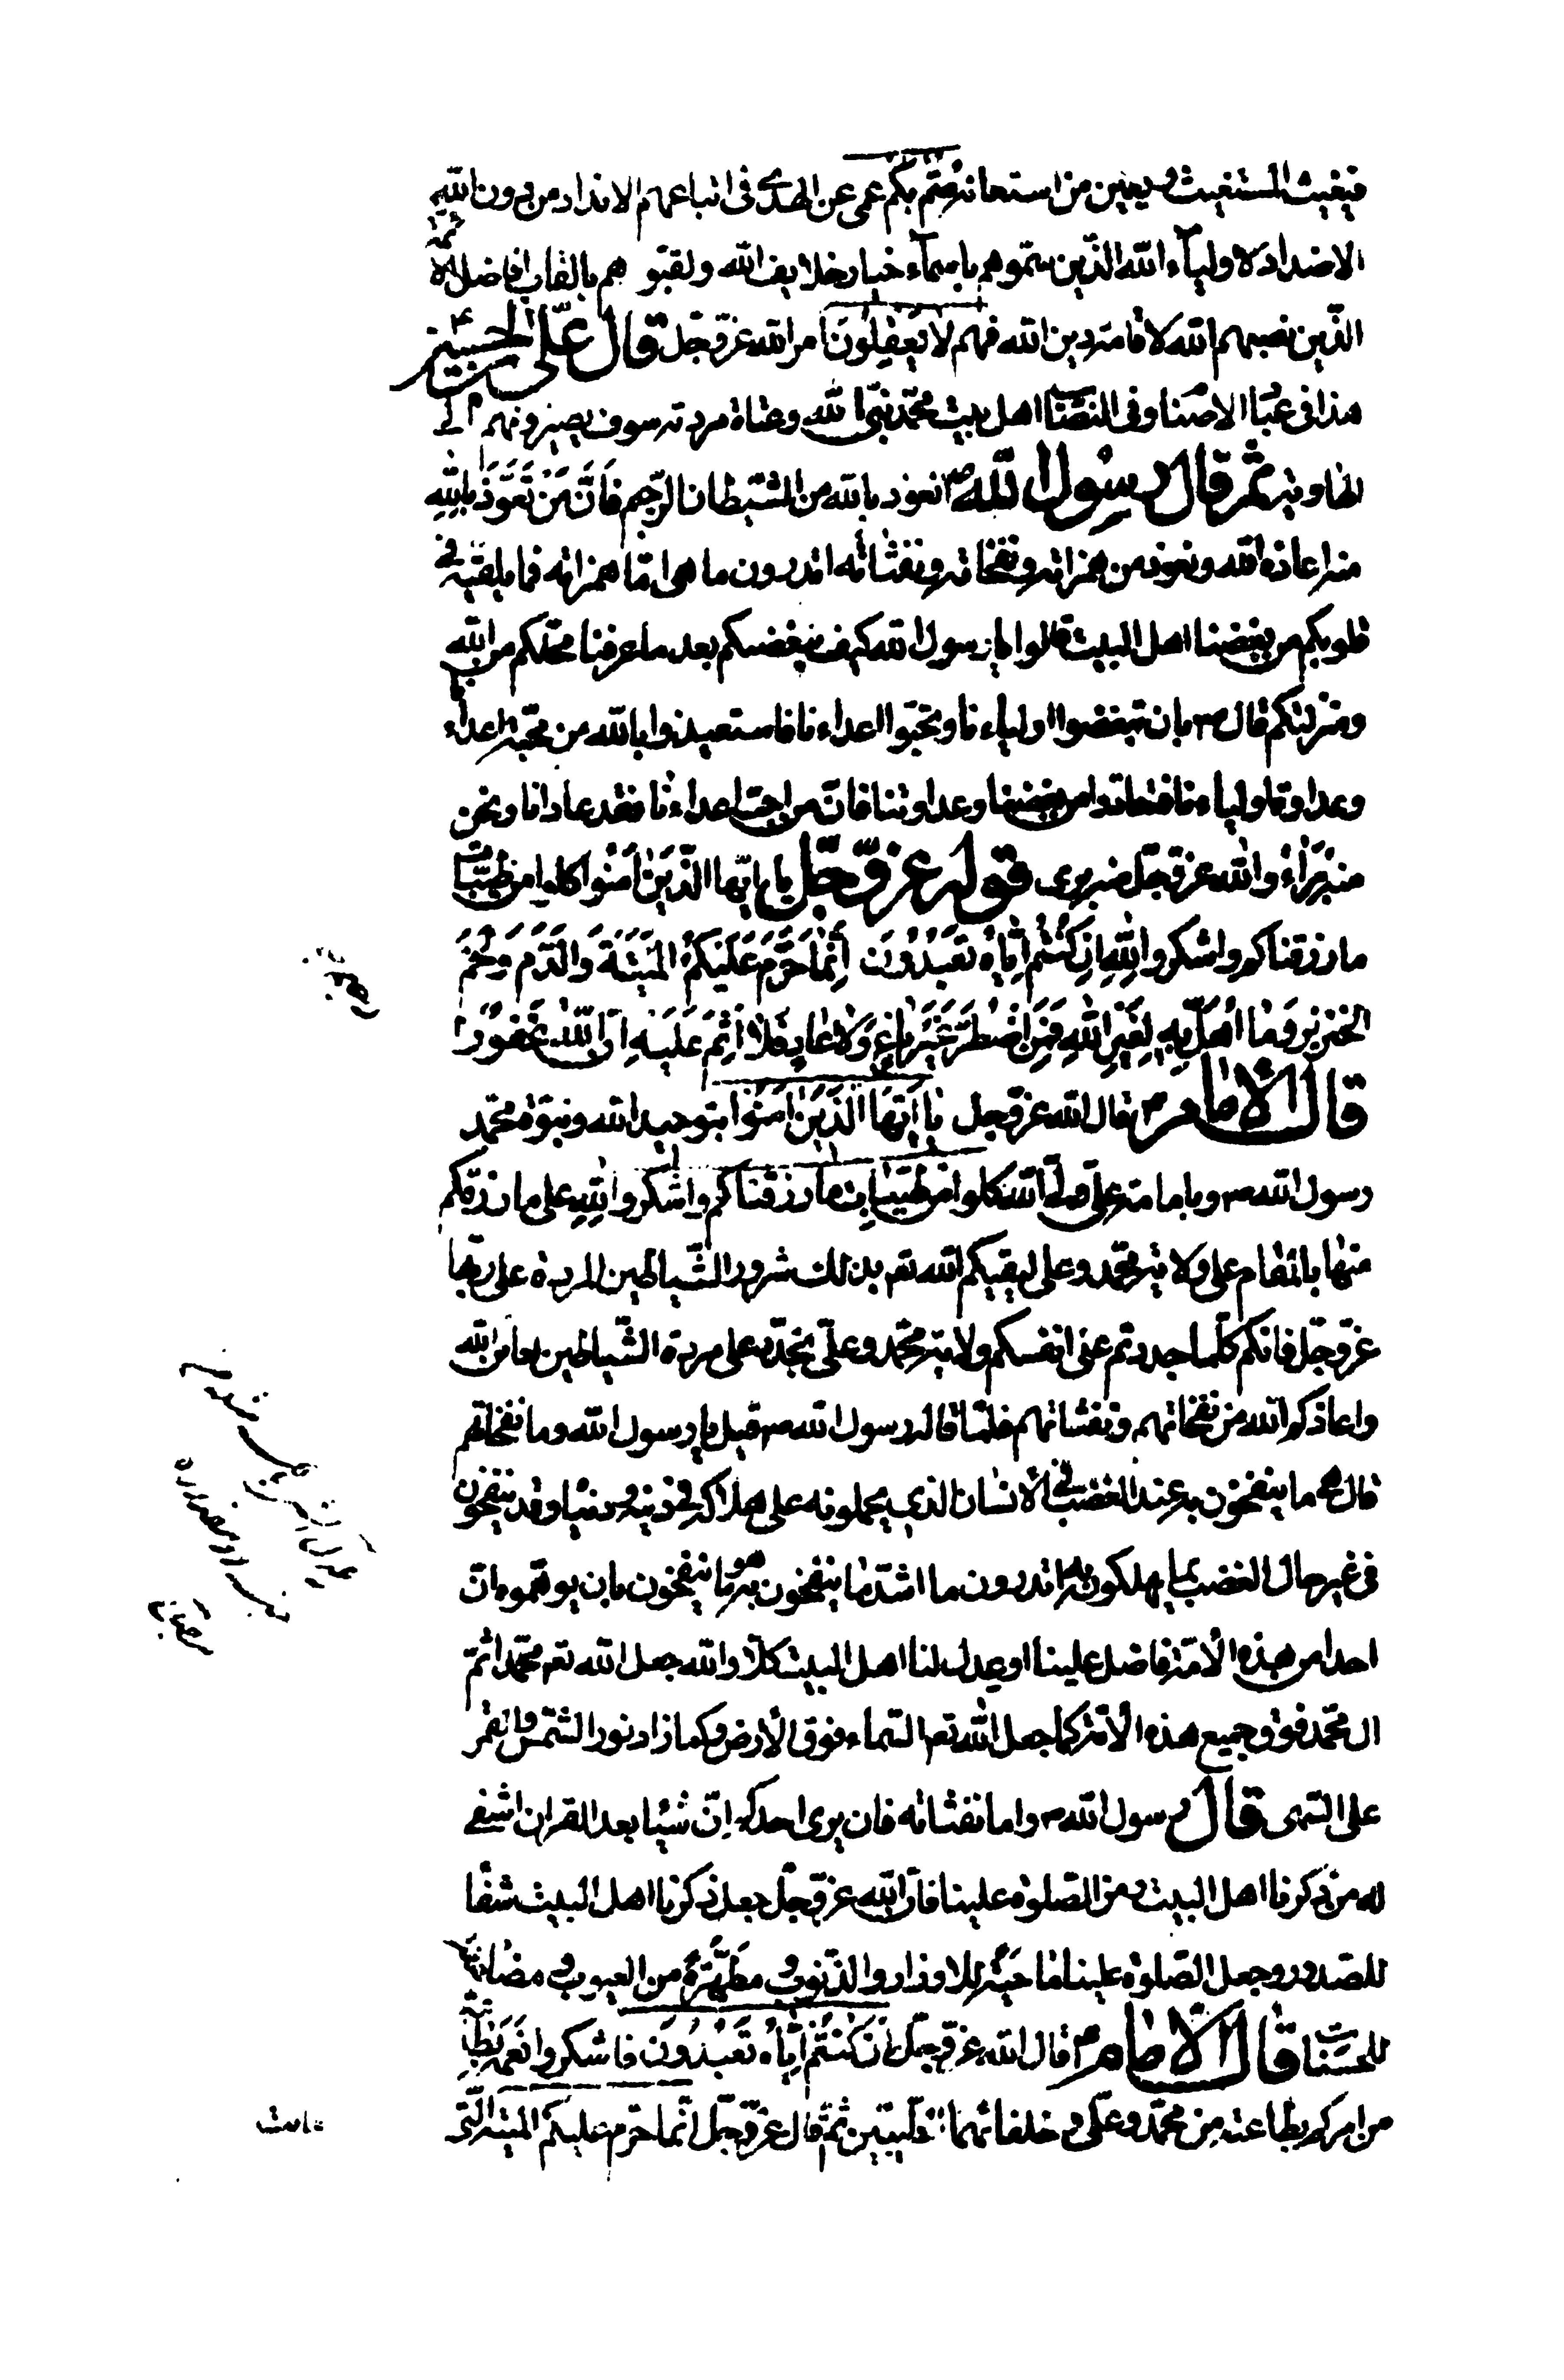 فيغيث المستغيث ويعين من استعانه صم بكم عمى عن الهدى فى اتباعهم الانداد من دون الله
الاضداد لاولياء الله الذين سموهم باسماء خيار خلايف الله ولقبوهم بالقاب افاضل الائمة
الذين نصبهم الله لاقامة دين الله فهم لا يعقلون امر الله عز وجل قال على بن الحسين ع
هذا فى عباد الاصنام وفى النصاب اهل بيت محمد نبى الله وعتاة مردته سوف يصيرونهم الى
الهاوية ثم قال رسول الله ص نعوذ بالله من الشيطان الرجيم فان من تعوذ بالله
منه اعاذه الله ونعوذ من همزاته ونفخاته ونفثاته اتدرون ما هى اما همزاته فما يلقيه فى
قلوبكم من بغضنا اهل البيت قالوا يا رسول الله كيف نبغضكم بعد ما عرفنا محلكم من الله
ومنزلتكم قال ص بان تبغضوا اولياءنا وتحبوا اعداءنا فاستعيذوا بالله من محبة اعداء
وعداوة اولياءنا فتعاذوا من بغضنا وعداوتنا فان من احب اعداءنا فقد عادانا ونحن
منه براء والله عز وجل منه برى قوله عز وجل يا ايها الذين امنوا كلوا من طيبات
ما رزقناكم واشكروا لله ان كنتم اياه تعبدون انما حرم عليكم الميتة والدم ولحم
الخنزير وما اهل به لغير الله فمن اضطر غير باغ ولا عاد فلا اثم عليه ان الله غفور
قال الامام ع قال الله عز وجل يا ايها الذين امنوا بتوحيد الله ونبوة محمد
رسول الله ص وبامامة على ولى الله كلوا من طيبات ما رزقناكم واشكروا لله على ما رزقكم
منها بالمقام على ولاية محمد وعلى ليقيكم الله تعم بذلك شرور الشياطين المردة على ربها
عز وجل فانكم كلما جددتم على انفسكم ولاية محمد وعلى تجدد على مردة الشياطين لعاين الله
واعاذكم الله من نفخاتهم ونفثاتهم فلما قاله رسول الله ص قيل يا رسول الله وما نفخاتهم
قال هى ما ينفخون به عند الغضب فى الانسان الذى يحملونه على هلاكه فى دينه ودنياه وقد ينفخون
فى غير حال الغضب بما يهلكون به اتدرون ما اشد ما ينفخون به هو ما ينفخون بان يوهموه ان
احدا من هذه الامة فاضل علينا او عدل لنا اهل البيت كلا والله جعل الله تعم محمدا ثم
ال محمد فوق جميع هذه الامة كما جعل الله تعم السماء فوق الارض وكما زاد نور الشمس والقمر
على السهى قال رسول الله ص واما نفثاته فان يرى احدكم ان شيئا بعد القران اشفى
له من ذكرنا اهل البيت ومن الصلوة علينا فان الله عز وجل جعل ذكرنا اهل البيت شفا
للصدور وجعل الصلوة علينا ماحية للاوزار والذنوب ومطهرة من العيوب ومضاعفة
للحسنات قال الامام ع قال الله عز وجل ان كنتم اياه تعبدون فاشكروا نعمة الله بطاعة
من امركم بطاعته من محمد وعلى وخلفائهما الطيبين ثم قال عز وجل انما حرم عليكم الميتة التى